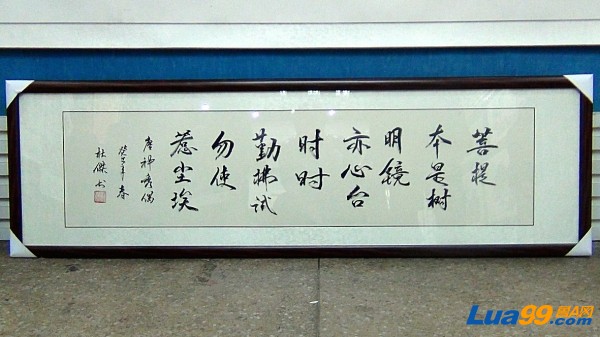 菩提
本是树
明镜
亦心台
时时
勤拂拭
勿使
惹尘埃
唐神秀偈
癸巳年春
杜傑书
Lua99.com